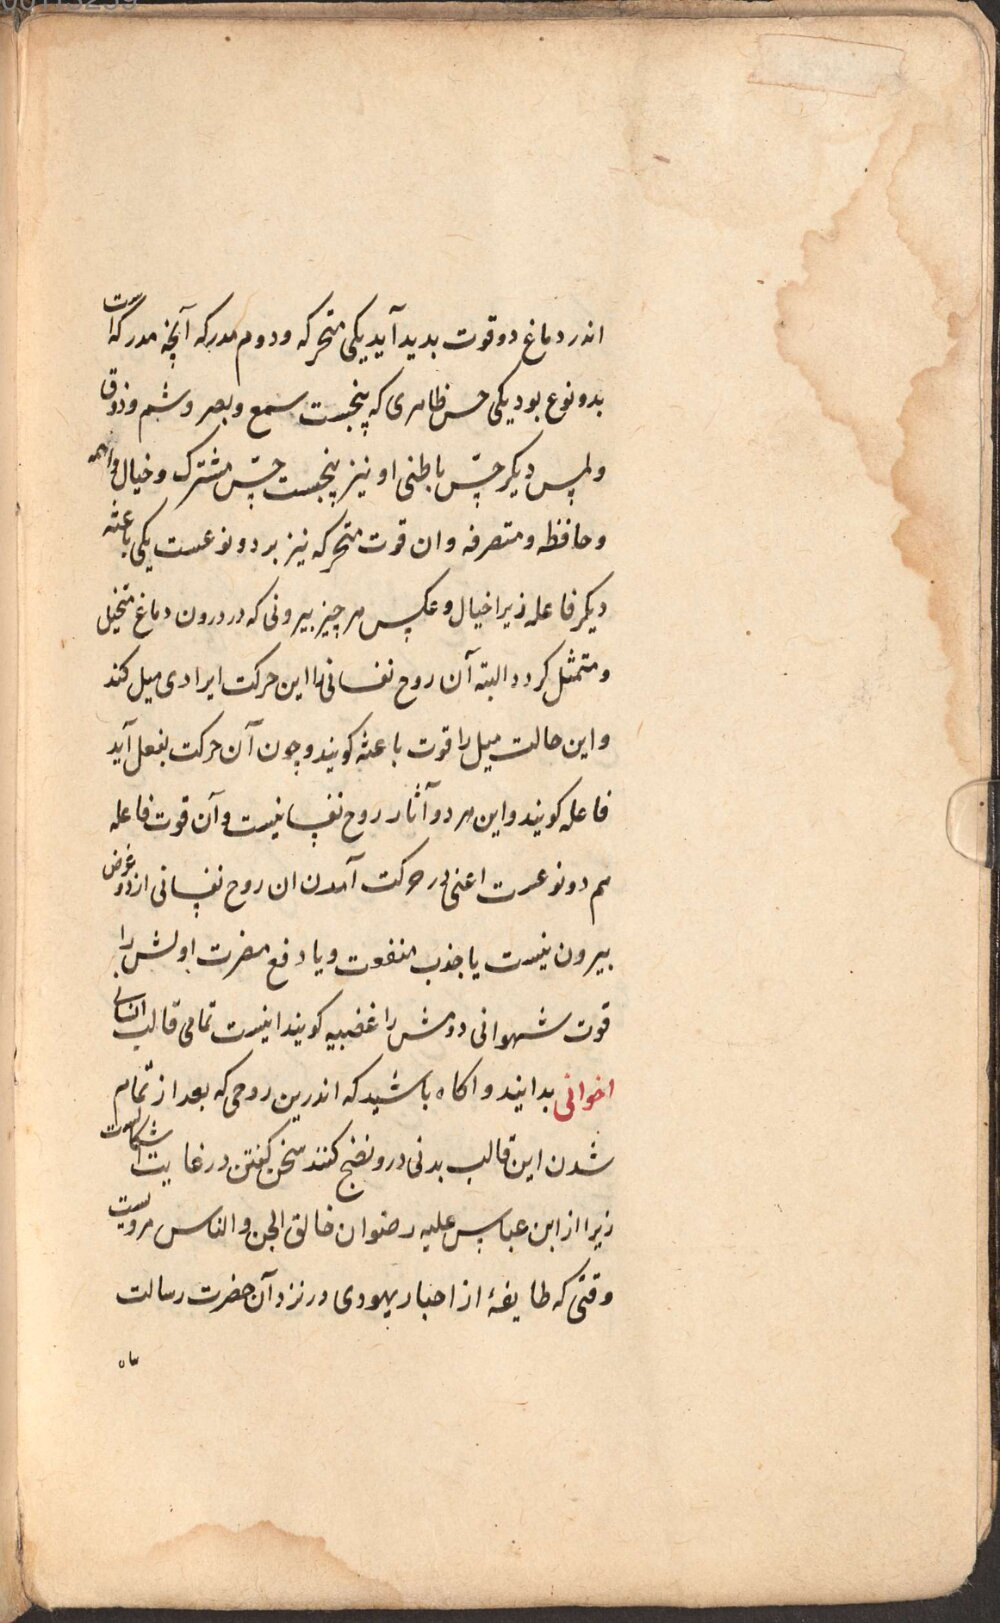 اندر دماغ دو قوت بدید آید یکی متحرکه و دوم مدرکه آنچه مدرکه است
بدو نوع بود یکی حس ظاهری که پنجست سمع و بصر و شم و ذوق
و لمس دیکر حس باطنی او نیز پنجست حس مشترک و خیال و واهمه
و حافظه و متصرفه و ان قوت متحرکه نیز بر دو نوعست یکی باعثه
دیکر فاعله زیرا خیال و عکس هر چیز بیرونی که در درون دماغ متخیل
و متمثل کردد البته آن روح نفسانی را این حرکت ایرادی میل کند
و این حالت میل را قوت باعثه کویند و چون آن حرکت بفعل آید
فاعله کویند و این هر دو آثار روح نفسانیست و آن قوت فاعله
هم دو نوعست اعنی در حرکت آمدن ان روح نفسانی از دو غرض
بیرون نیست یا جذب منفعت و یا دفع مضرت اولش را
قوت شهوانی دومش را غضبیه کویند اینست تمامی قالب انسانی
اخوانی بدانید و اکاه باشید که اندرین روحی که بعد از تمام
شدن این قالب بدنی درو نفخ کنند سخن کفتن در غایت اشکالست
زیرا از ابن عباس علیه رضوان خالق الجن و الناس مرویست
وقتی که طایفهٔ از احبار یهودی در نزد آن حضرت رسالت